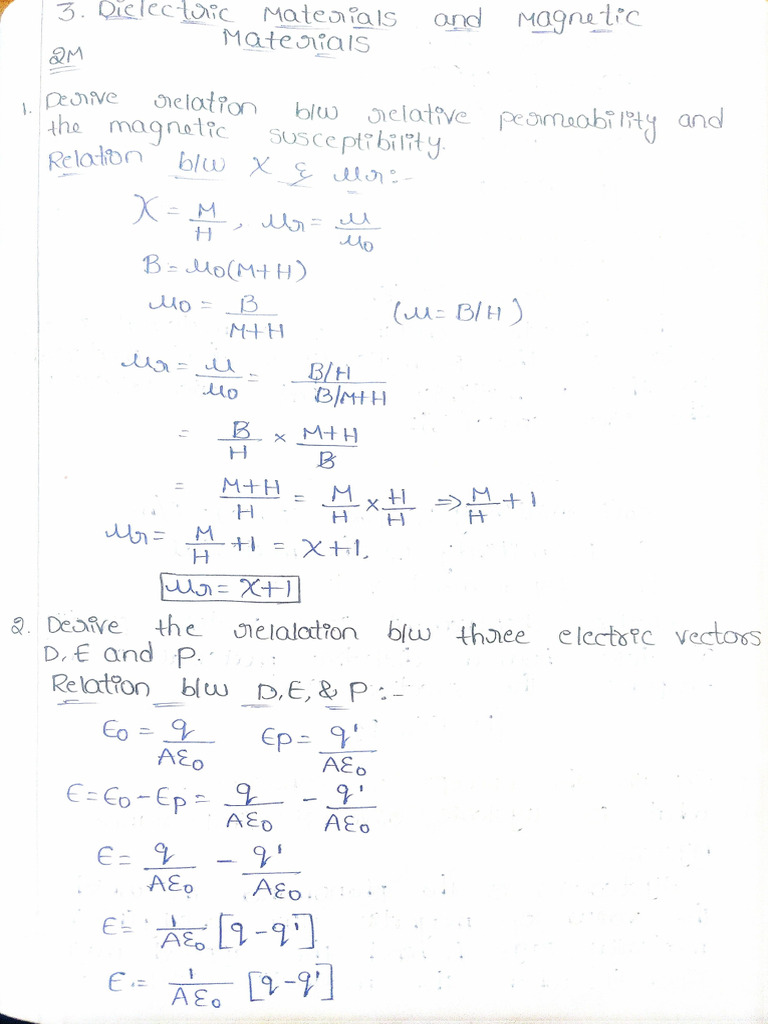 3. Dielectric Materials and Magnetic
Materials
2M
1. Derive relation b/w relative permeability and
the magnetic susceptibility.
Relation b/w X & μr:-
X = M/H, μr = μ/μ0
B = μ0(M+H)
μ0 = B/M+H (μ = B/H)
μr = μ/μ0 = B/H / B/M+H
= B/H × M+H/B
= M+H/H = M/H × H/H ⇒ M/H + 1
μr = M/H + 1 = X+1.
μr = X+1
2. Derive the rielalation b/w three electric vectors
D, E and P.
Relation b/w D, E, & P :-
Є0 = q/Aε0 Єp = q'/Aε0
Є = Є0 - Єp = q/Aε0 - q'/Aε0
Є = q/Aε0 - q'/Aε0
Є = 1/Aε0 [q - q']
Є = 1/Aε0 [q - q']